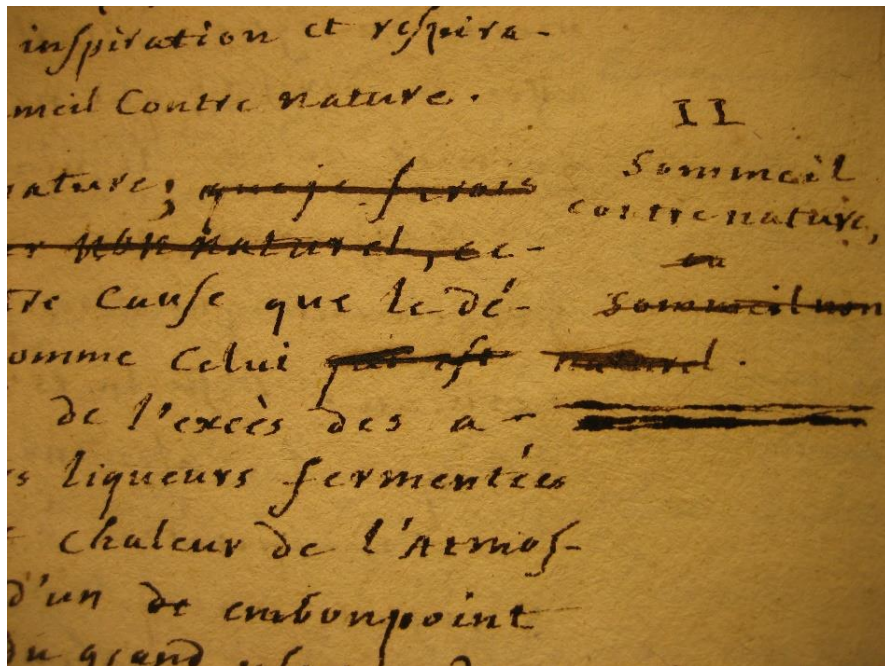 inspiration et respira-
meil Contre nature.
nature; que je serois
er non naturel, ce-
tre Cause que le dé-
omme Celui qui est
de l'excès des a-
s liqueurs fermentées
chaleur de l'Atmos-
d'un de embonpoint
du grand
II
Sommeil
contre nature,
ou
Sommeil non
naturel.